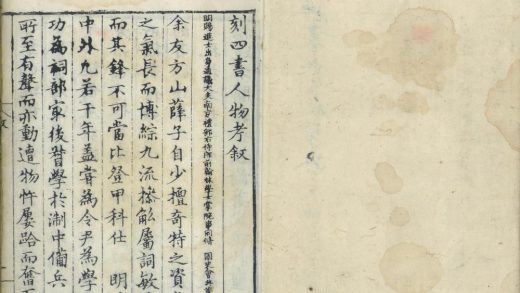 刻四書人物考叙
明賜進士出身通議大夫南京禮部右侍郎前翰林學士掌院事同修 國史會典
余友方山薛子自少擅奇特之資
之氣長而博綜九流摻觚屬詞敏
而其鋒不可當比登甲科仕 明
中外九若干年盖嘗為令尹為學
功為祠部家後督學於淛中備兵
所至有聲而亦動遭物忤屢路而奮